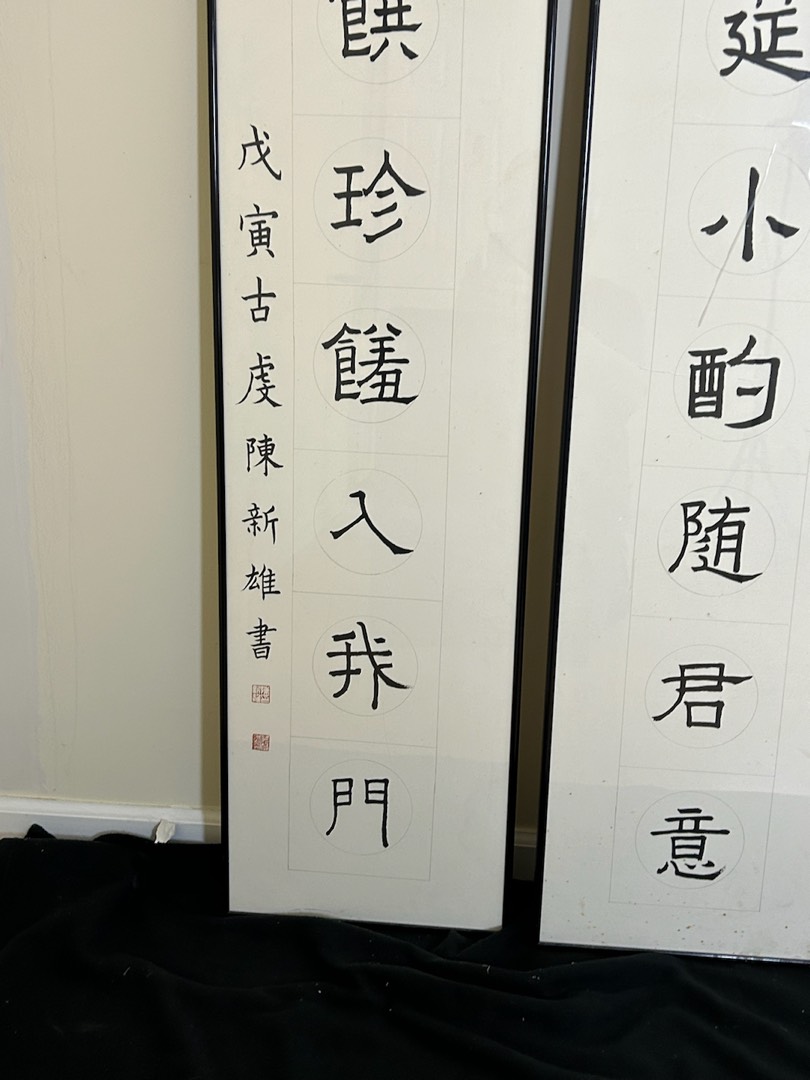 小酌随君意
饌珍饈入我門
戊寅古虔陳新雄書